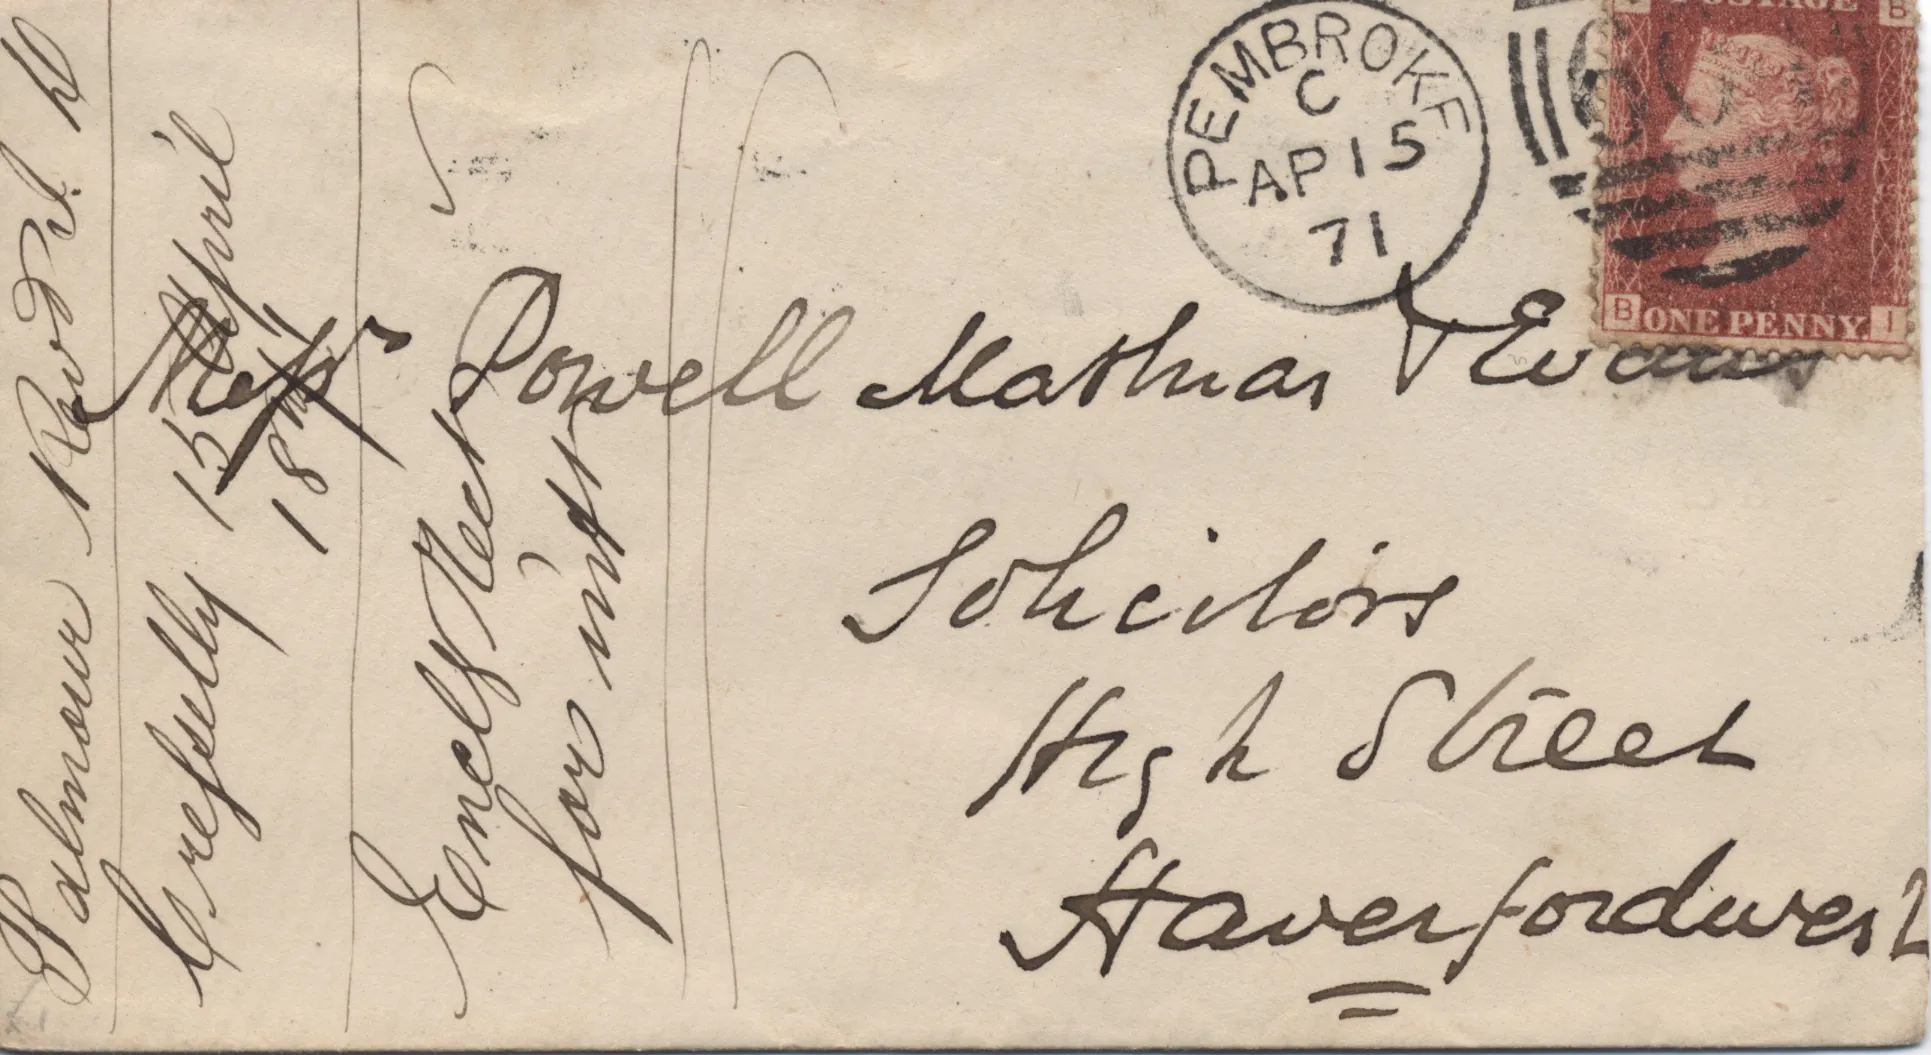 PEMBROKE
C
AP 15
71
POSTAGE
B
B ONE PENNY. I
Messrs Powell Mathias & Evans
Solicitors
High Street
Haverfordwest
Palmour Revd
Cresselly 15 April
18
Encls
for